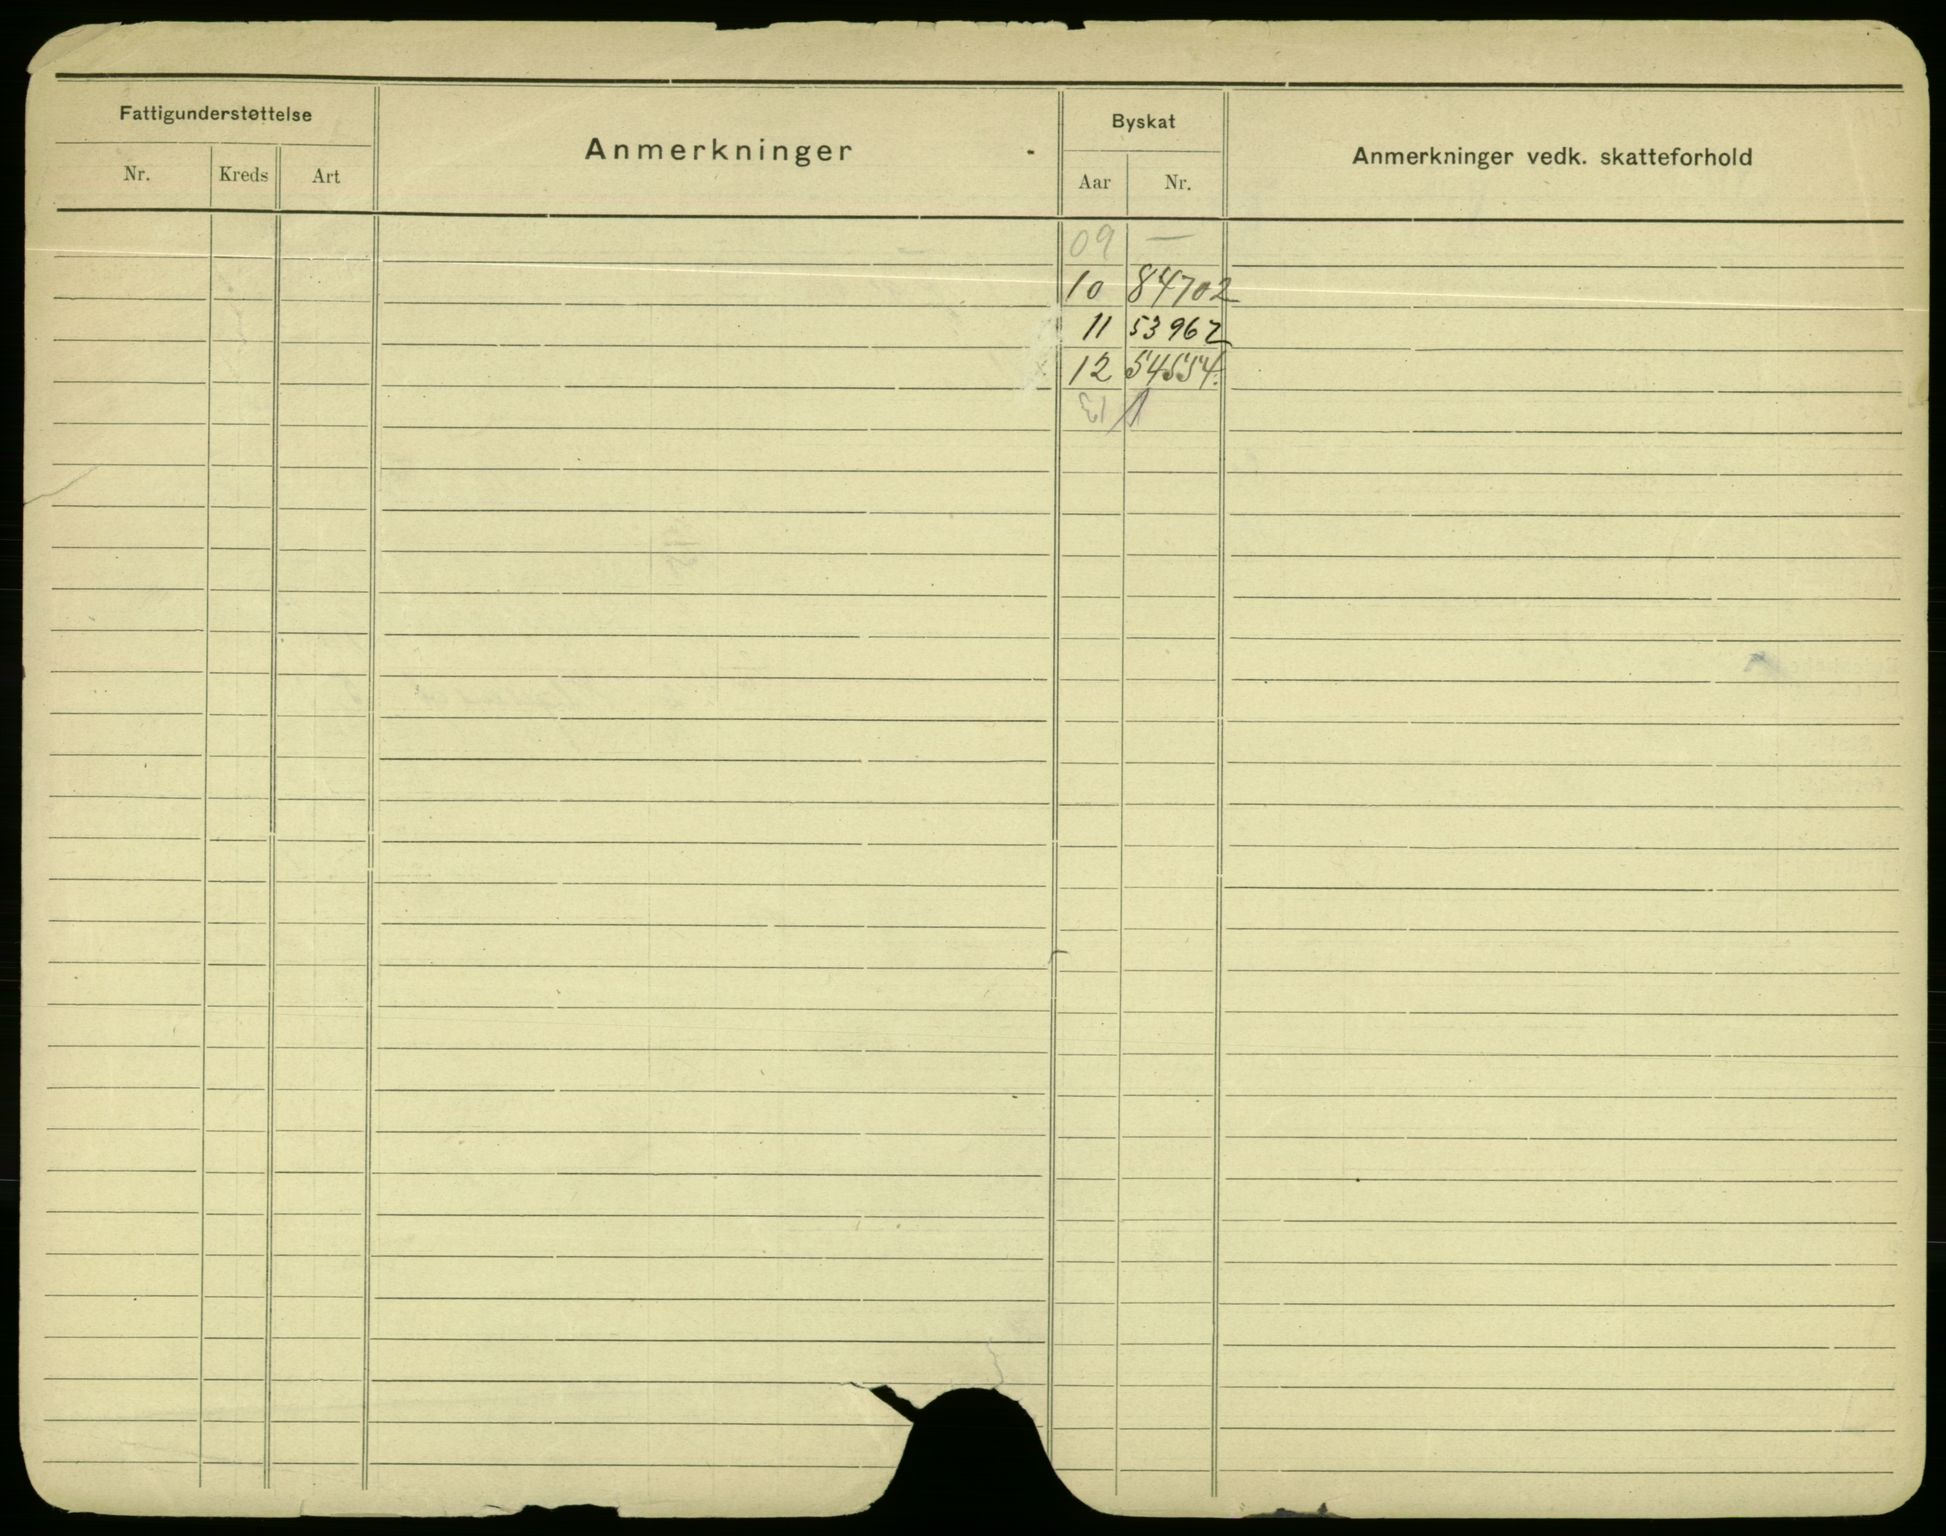 Fattigunderstøttelse
Nr. Kreds Art
Anmerkninger
Byskat
Aar Nr.
Anmerkninger vedk. skatteforhold
09 —
10 84702
11 53962
12 54554.
13